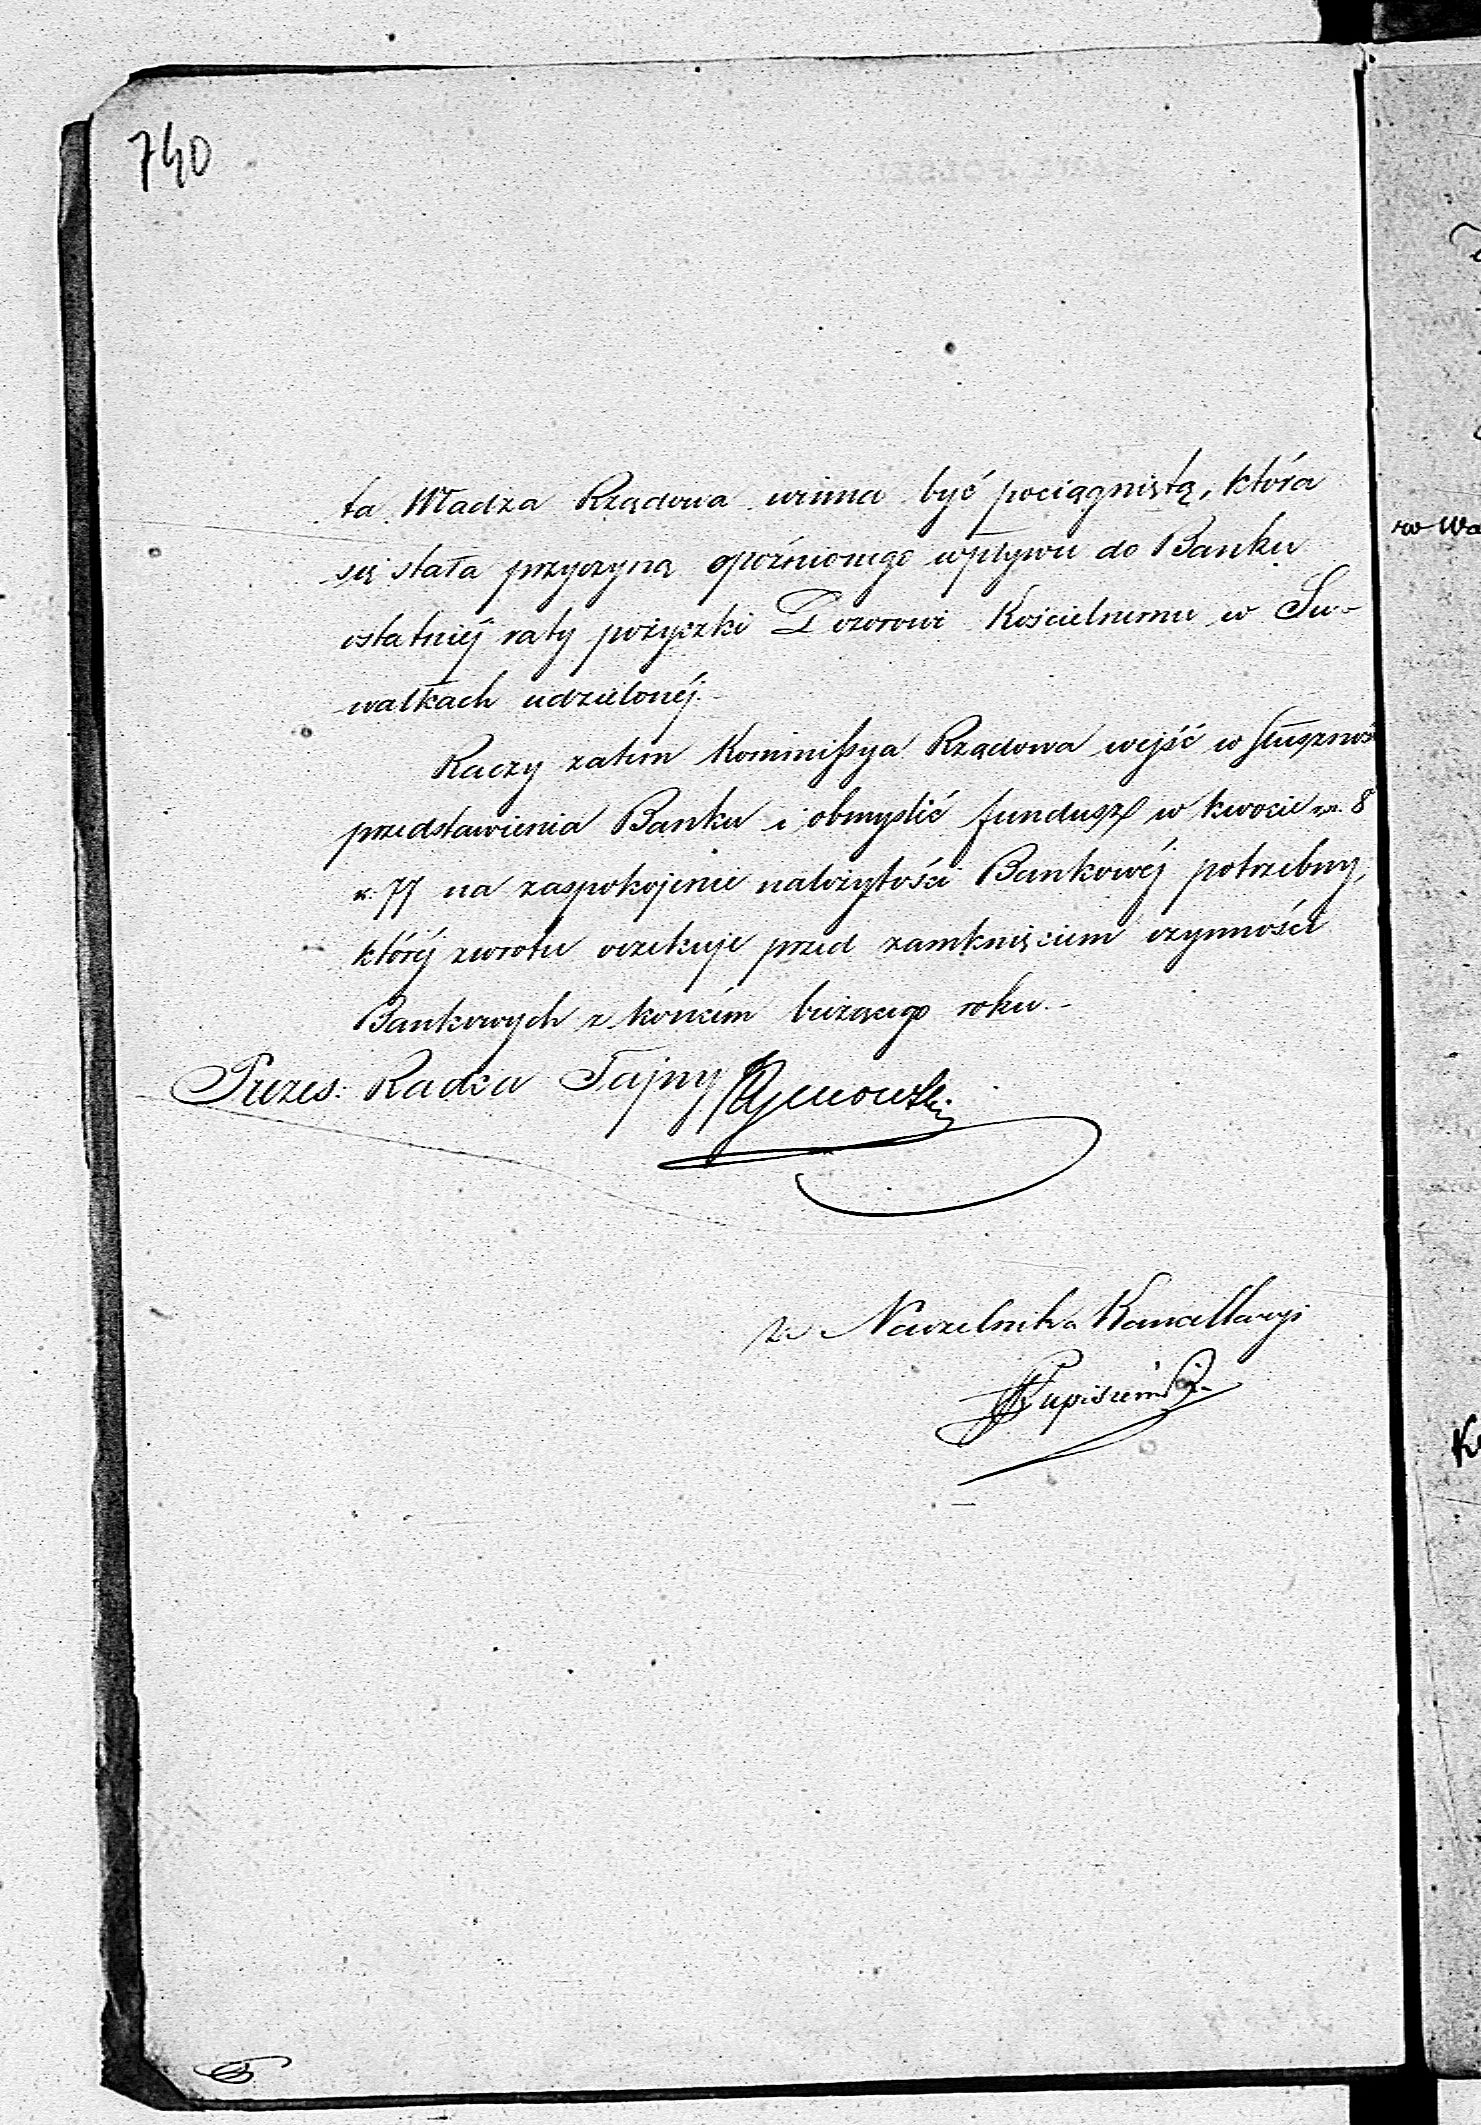 740
ta Władza Rządowa winna być pociągniętą, która
się stała przyczyną opóźnionego wpływu do Banku
ostatniéj raty pożyczki Dozorowi Kościelnemu w Su-
wałkach udzielonéj.-
Raczy zatem Kommissya Rządowa wejść w słuszność
przedstawienia Banku i obmyslić fundusz w kwocie rs. 8
k. 77 na zaspokojenie należytości Bankowéj potrzebny,
któréj zwrotu oczekuje przed zamknięciem czynności
Bankowych z końcem bieżącego roku.-
Prezes: Radca Tajny
za Naczelnika Kancellaryi